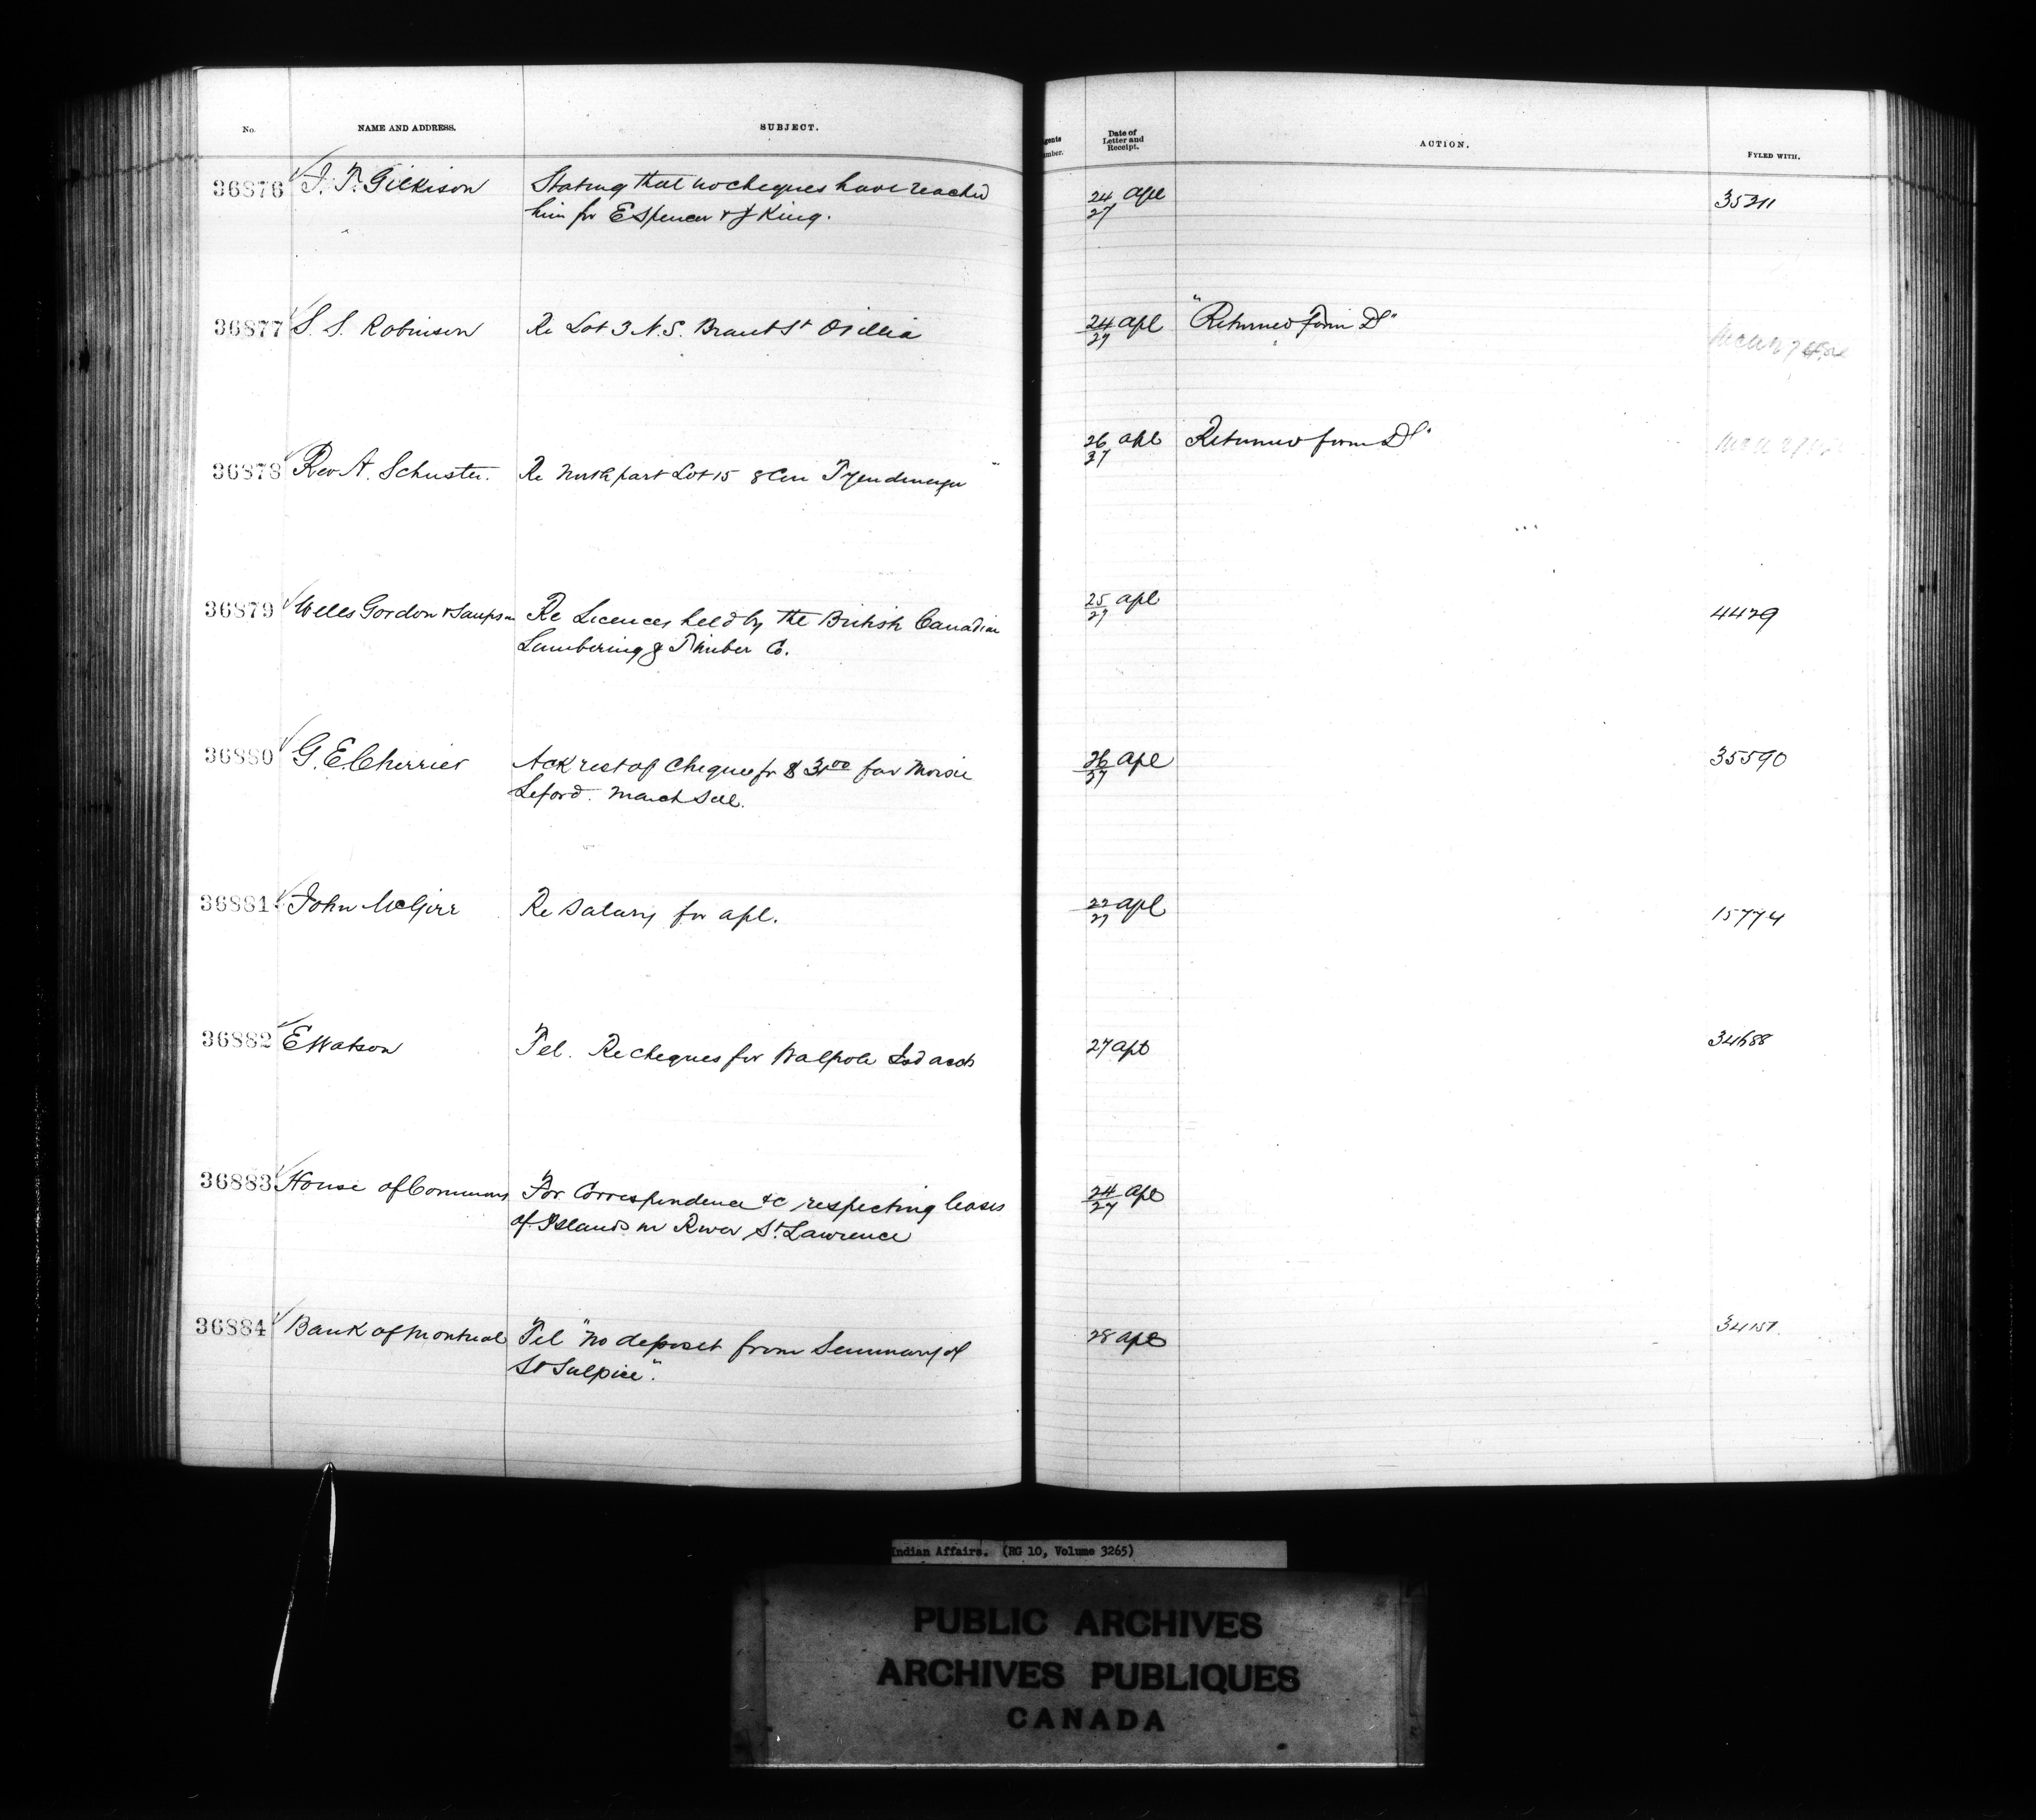 No. NAME AND ADDRESS. SUBJECT. Date of Letter and Receipt. ACTION. FYLED WITH.
36876 J. T. Gilkison Stating that no cheques have reached 24/27 Apl 35211
him for E Spencer & J King.
36877 S. S. Robinson Re Lot 3 N.S. Brant St Orillia 24/27 apl "Returned Form D"
36878 Rev A. Schuster. Re North part Lot 15 8 Con Tyendinaga 26/27 apl Returned form D"
36879 Wells Gordon & Sampson Re Licences held by the British Canadian 25/27 apl 4429
Lumbering & Timber Co.
36880 G. E. Cherrier Ack rect of Cheque for $ 31 00 fav Moise 26/27 apl 35590
Leford. March Sal.
36881 John McGirr Re Salary for apl. 22/27 apl 15774
36882 E Watson Tel. Re cheques for Walpole Isd accts 27 apl 34688
36883 House of Commons For Correspondence &c respecting leases 24/27 apl
of Islands in River St. Lawrence
36884 Bank of Montreal Tel "No deposit from Seminary of 28 apl 34151
St Sulpice".
Indian Affairs. (RG 10, Volume 3265)
PUBLIC ARCHIVES
ARCHIVES PUBLIQUES
CANADA